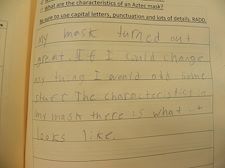 What are the characteristics of an Aztec mask?
Be sure to use capital letters, punctuation and lots of details. RADD.
My mask turned out
great. If I could change
my thing I would add
The characteristics of
my mask there is what it
looks like.